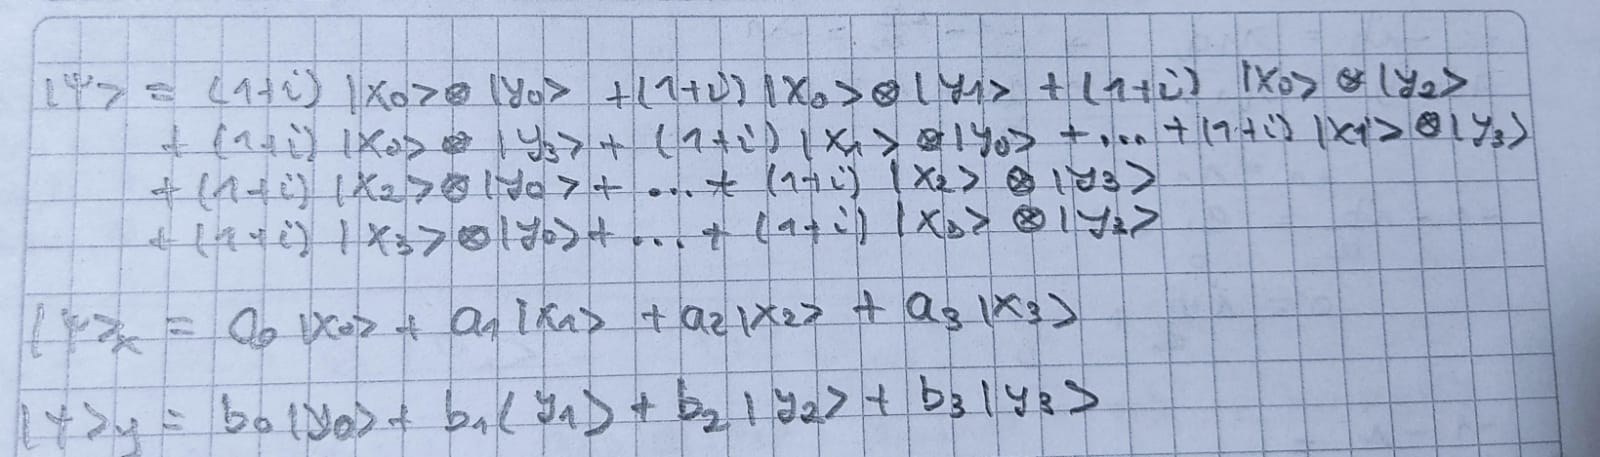 |Ψ> = (1+i) |x₀>⊗|y₀> +(1+i) |x₀>⊗|y₁> + (1+i) |x₀> ⊗|y₂>
+ (1+i) |x₀>⊗ |y₃> + (1+i) |x₁>⊗|y₀> + ... + (1+i) |x₁>⊗|y₃>
+ (1+i) |x₂>⊗|y₀> + ... + (1+i) |x₂> ⊗ |y₃>
+ (1+i) |x₃>⊗|y₀> + ... + (1+i) |x₃> ⊗ |y₃>
|Ψ>ₓ = a₀ |x₀> + a₁ |x₁> + a₂ |x₂> + a₃ |x₃>
|Ψ>y = b₀ |y₀> + b₁ (y₁> + b₂ |y₂> + b₃ |y₃>